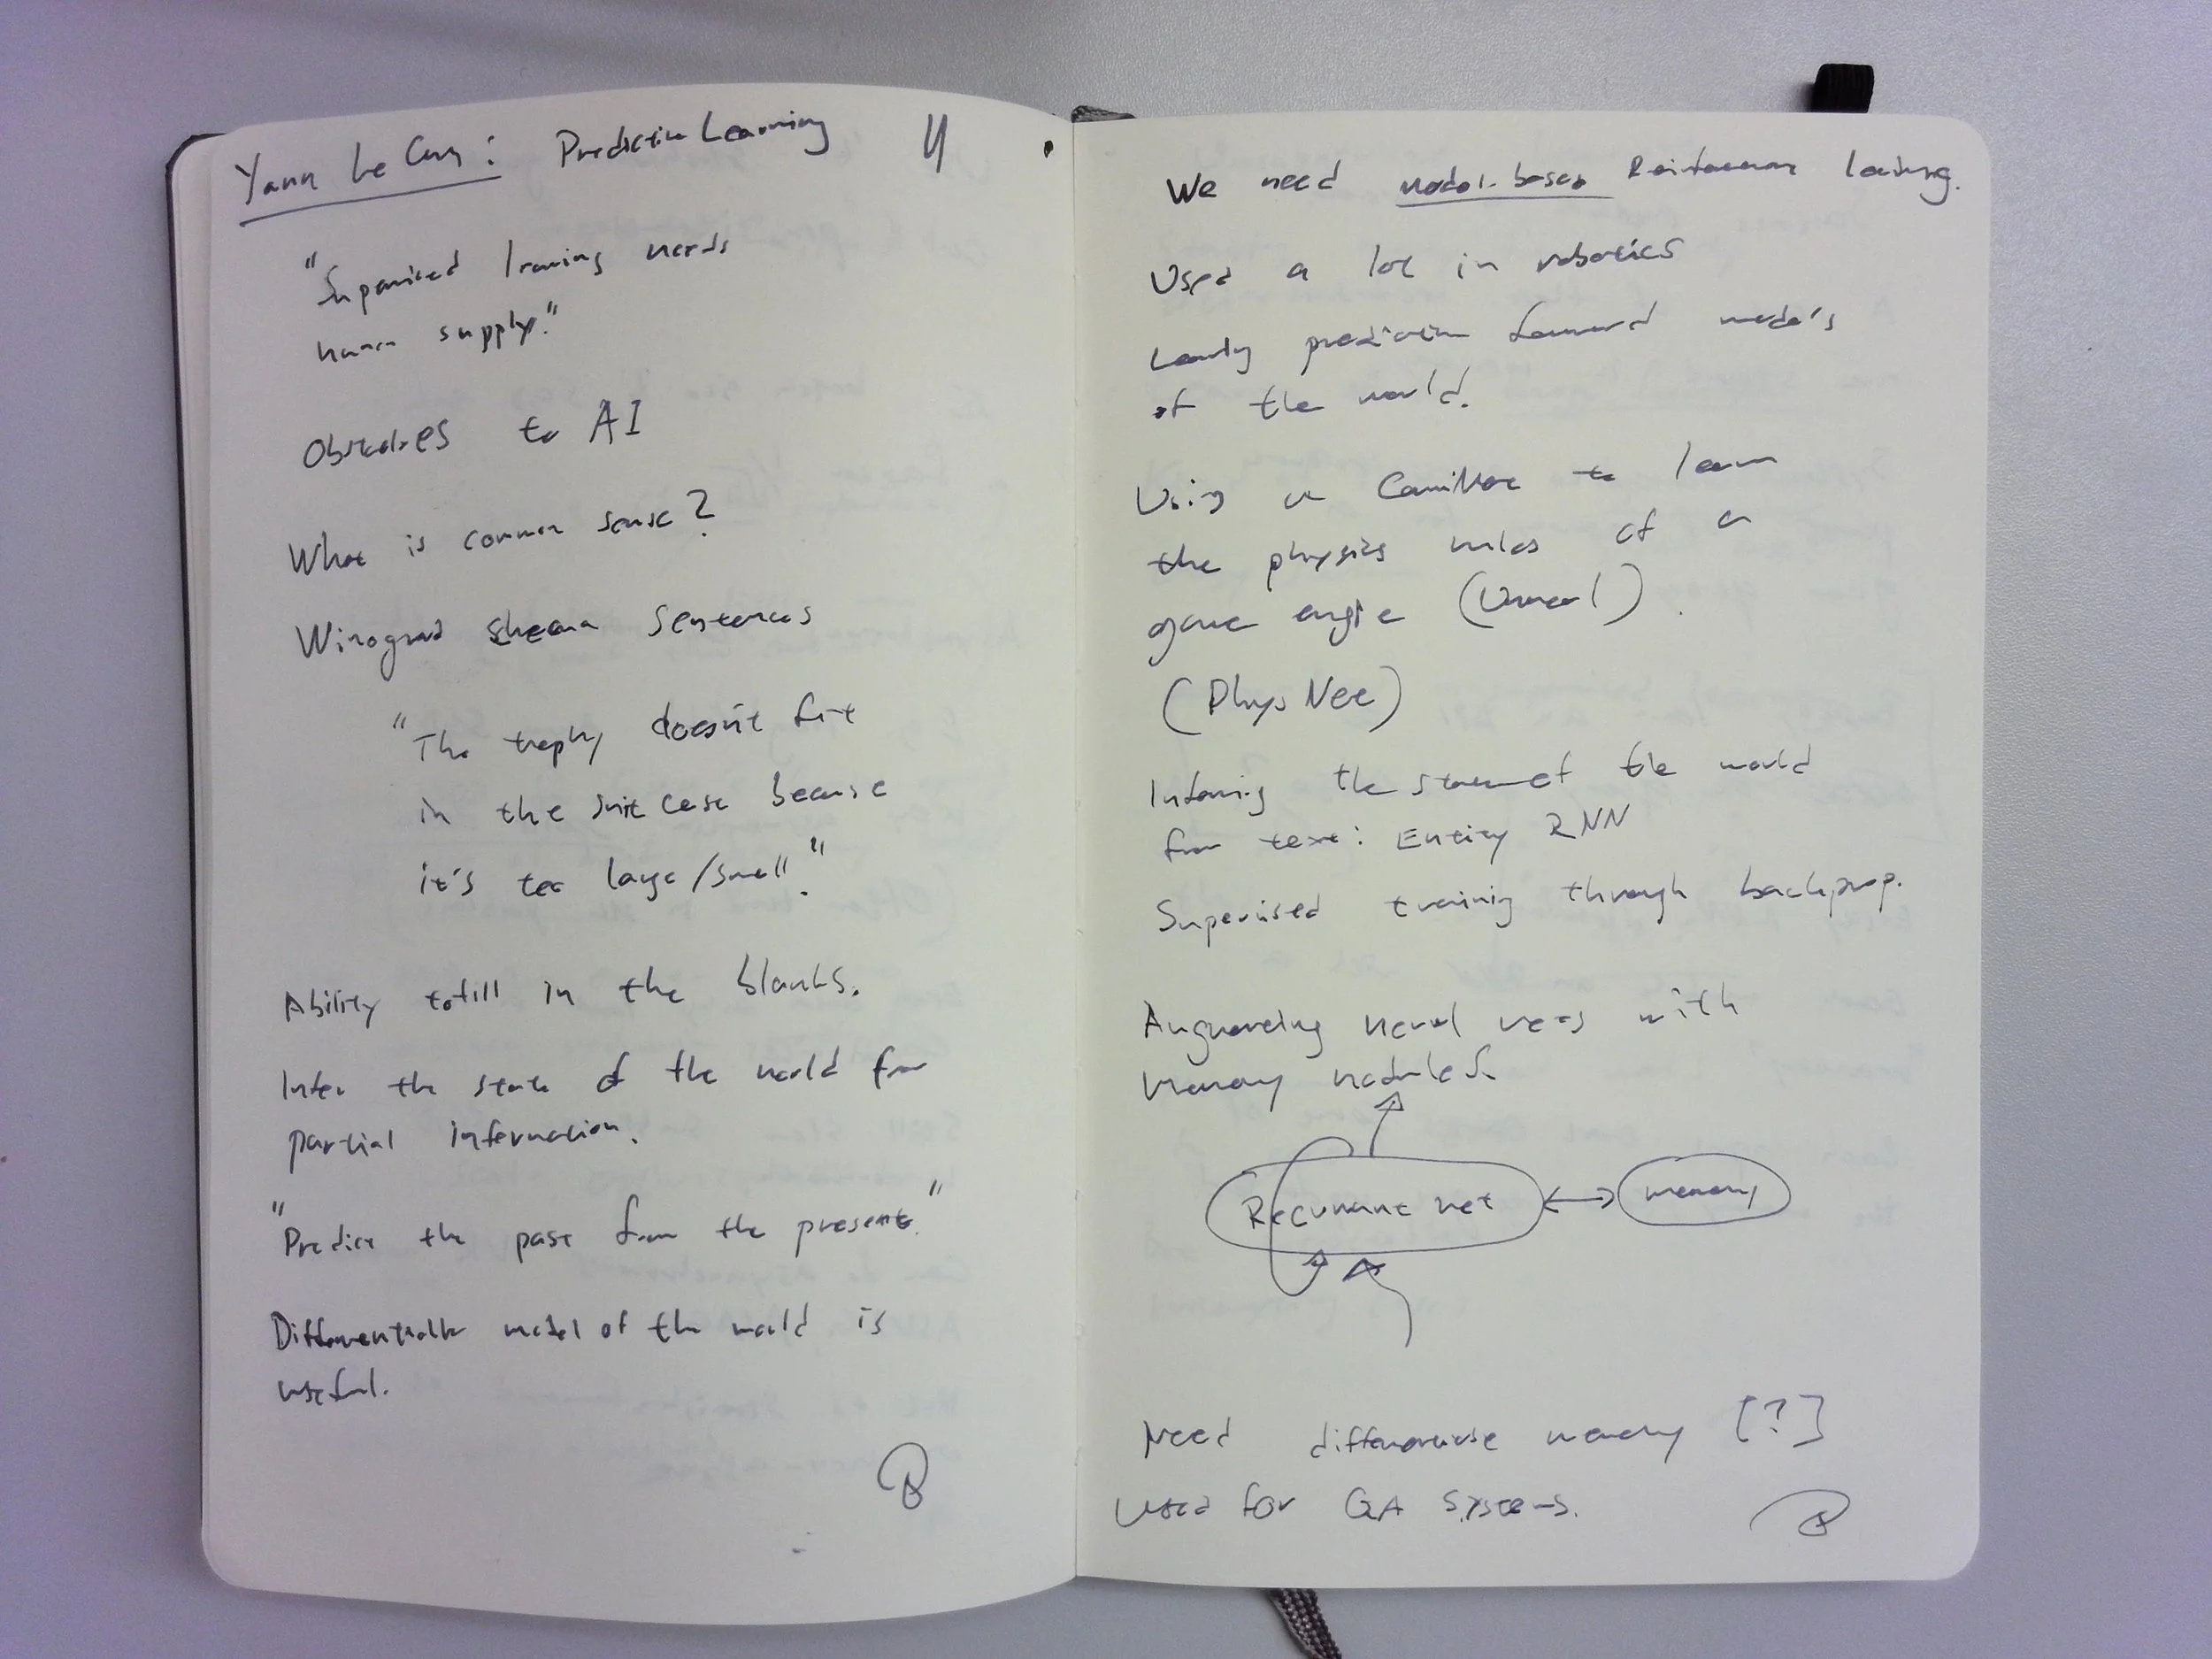 Yann LeCun: Predictive Learning
"Supervised learning needs
human supply."
Obstacles to AI
What is common sense?
Winograd schema sentences
"The trophy doesn't fit
in the suitcase because
it's too large/small."
Ability to fill in the blanks.
Infer the state of the world from
partial information.
"Predict the past from the present."
Differentiable model of the world is
useful.
We need model-based Reinforcement learning.
Used a lot in robotics
Learning prediction forward models
of the world.
Using a to learn
the physics rules of a
game engine (Unreal).
(PhysNet)
Inferring the state of the world
from text: Entity RNN
Supervised training through backprop.
Augmenting neural nets with
memory modules.
Recurrent net
memory
Need memory [?]
Used for QA systems.